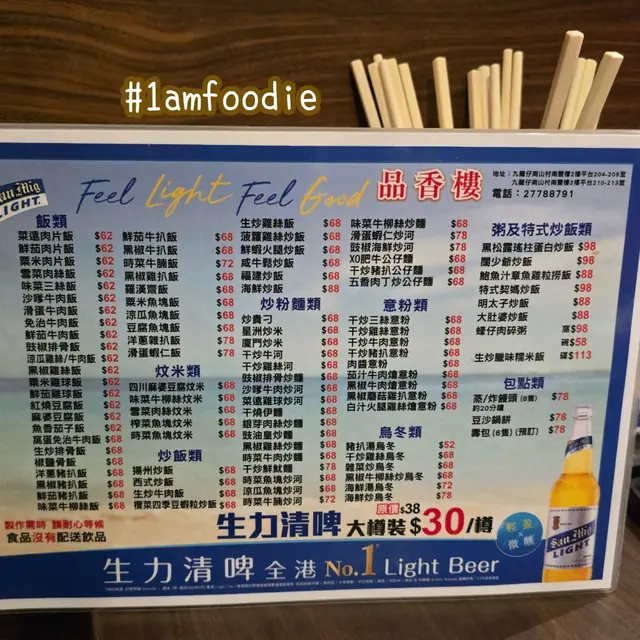 #1amfoodie
San Mig
LIGHT
Feel Light Feel Good
品香樓
地址：九龍仔南山村南豐樓2樓平台204-205室
九龍仔南山村南豐樓2樓平台210-213室
電話：27788791
飯類
菜遠肉片飯 $62
鮮茄肉片飯 $62
粟米肉片飯 $62
雪菜肉絲飯 $62
味菜三絲飯 $62
沙嗲牛肉飯 $62
滑蛋牛肉飯 $62
免治牛肉飯 $62
鮮茄牛肉飯 $62
豉椒排骨飯 $62
涼瓜雞絲/牛肉飯 $62
黑椒雞絲飯 $62
粟米雞球飯 $62
鮮茄雞球飯 $62
紅燒豆腐飯 $62
麻婆豆腐飯 $62
魚香茄子飯 $62
窩蛋免治牛肉飯 $68
生炒排骨飯 $68
椒鹽骨飯 $68
洋蔥豬扒飯 $68
黑椒豬扒飯 $68
鮮茄豬扒飯 $68
味菜牛柳絲飯 $68
鮮茄牛扒飯 $68
黑椒牛扒飯 $68
時菜牛腩飯 $72
黑椒雞扒飯 $68
羅漢齋飯 $68
粟米魚塊飯 $68
涼瓜魚塊飯 $68
豆腐魚塊飯 $68
洋蔥雞扒飯 $78
滑蛋蝦仁飯 $78
炆米類
四川麻婆豆腐炆米 $68
味菜牛柳絲炆米 $68
雪菜肉絲炆米 $68
榨菜魚塊炆米 $68
時菜魚塊炆米 $68
炒飯類
揚州炒飯 $68
西式炒飯 $68
生炒牛肉飯 $68
欖菜四季豆蝦粒炒飯 $68
生炒雞絲飯 $68
菠蘿雞絲炒飯 $68
鮮蝦火腿炒飯 $68
咸牛鬆炒飯 $68
福建炒飯 $68
海鮮炒飯 $88
炒粉麵類
炒貴刁 $68
星洲炒米 $68
廈門炒米 $68
干炒牛河 $68
干炒雞絲河 $68
豉椒排骨炒麵 $68
沙嗲牛肉炒河 $68
菜遠雞球炒河 $68
干燒伊麵 $68
銀芽肉絲炒麵 $68
豉油皇炒麵 $68
黑椒牛柳絲炒麵 $68
時菜牛肉炒麵 $68
干炒鮮魷麵 $78
時菜魚塊炒河 $68
涼瓜魚塊炒河 $68
時菜牛腩炒河 $72
味菜牛柳絲炒麵 $68
滑蛋蝦仁炒河 $78
豉椒海鮮炒河 $78
XO肥牛公仔麵 $68
干炒豬扒公仔麵 $68
五香肉丁炒公仔麵 $68
意粉類
干炒三絲意粉 $68
干炒雞絲意粉 $68
干炒牛肉意粉 $68
干炒豬扒意粉 $68
肉醬意粉 $68
茄汁牛肉燴意粉 $68
黑椒牛肉燴意粉 $68
黑椒蘑菇雞扒意粉 $68
白汁火腿雞絲燴意粉 $68
烏冬類
豬扒湯烏冬 $52
干炒雞絲烏冬 $68
雜菜炒烏冬 $68
黑椒牛柳絲炒烏冬 $68
海鮮湯烏冬 $72
海鮮炒烏冬 $78
粥及特式炒飯類
黑松露瑤柱蛋白炒飯 $98
闊少爺炒飯 $98
鮑魚汁章魚雞粒撈飯 $88
特式契媽炒飯 $98
明太子炒飯 $88
大肚婆炒飯 $88
蠔仔肉碎粥 窩$98
碗$58
生炒臘味糯米飯 碟$113
包點類
蒸/炸饅頭(8隻) $78
約20分鐘
豆沙鍋餅 $78
壽包(6隻)(預訂) $78
製作需時 請耐心等候
食品沒有配送飲品
原價$38
生力清啤 大樽裝$30/樽
輕盈×微醺
San Mig
LIGHT
生力清啤 全港No.1 Light Beer